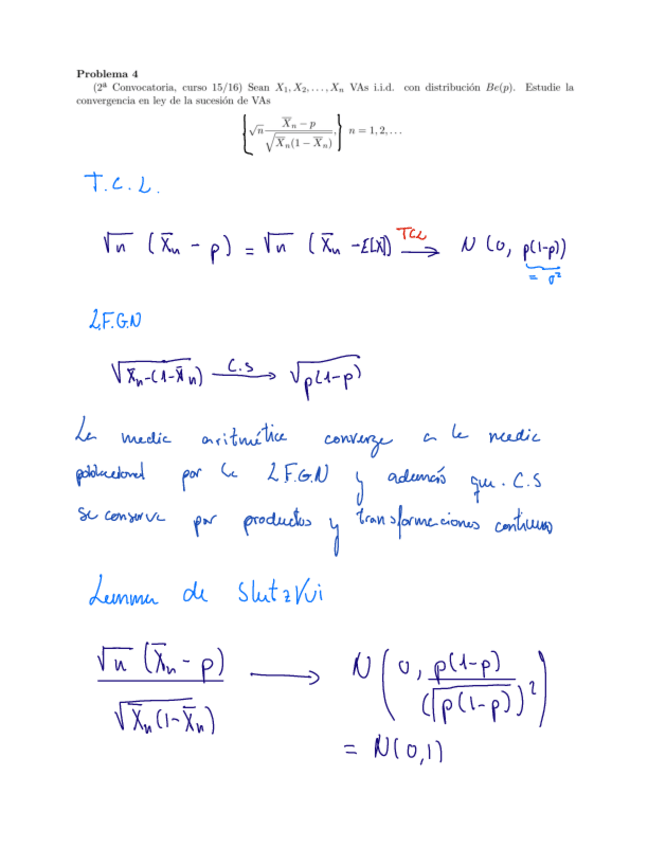 Problema 4
(2ª Convocatoria, curso 15/16) Sean X₁, X₂, . . . , Xₙ VAs i.i.d. con distribución Be(p). Estudie la
convergencia en ley de la sucesión de VAs
{√n (X̄ₙ − p) / √(X̄ₙ(1 − X̄ₙ)), } n = 1, 2, . . .
T.C.L.
√n (X̄ₙ - p) = √n (X̄ₙ - E[X]) TCL → N(0, p(1-p))
= σ²
L.F.G.N
√(X̄ₙ-(1-X̄ₙ)) C.S → √(p(1-p))
La media aritmética converge a la media
poblacional por la L.F.G.N y además que. C.S
se conserva por productos y transformaciones continuas
Lemma de Slutzki
√n (X̄ₙ - p) / √(X̄ₙ(1-X̄ₙ)) → N(0, p(1-p) / (√(p(1-p)))²)
= N(0,1)